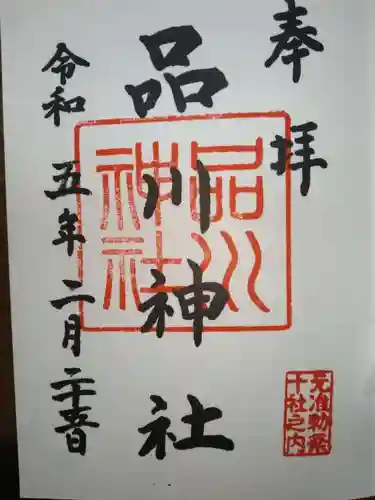 奉拝
品川神社
品川
神社
令和五年二月
元准勅祭
十社之内